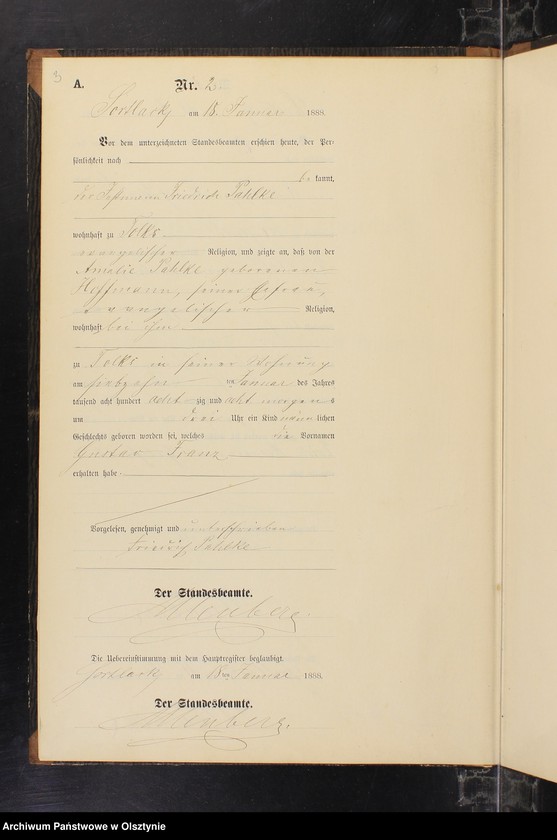 3
A.
Nr. 2
Sortlack am 18. Januar 1888.
Vor dem unterzeichneten Standesbeamten erschien heute, der Per-
sönlichkeit nach
kannt,
der Friedrich Pahlke
wohnhaft zu Tolks
evangelischer Religion, und zeigte an, daß von der
Amalie Pahlke geborenen
Hoffmann, seiner Ehefrau,
evangelischer Religion,
wohnhaft bei ihm
zu Tolks in seiner Wohnung
am ten Januar des Jahres
tausend acht hundert acht zig und acht morgen s
um drei Uhr ein Kind männ lichen
Geschlechts geboren worden sei, welches die Vornamen
Gustav Franz
erhalten habe
Vorgelesen, genehmigt und unterschrieben
Friedrich Pahlke
Der Standesbeamte.
Die Uebereinstimmung mit dem Hauptregister beglaubigt.
Sortlack am 18ten Januar 1888.
Der Standesbeamte.
Archiwum Państwowe w Olsztynie